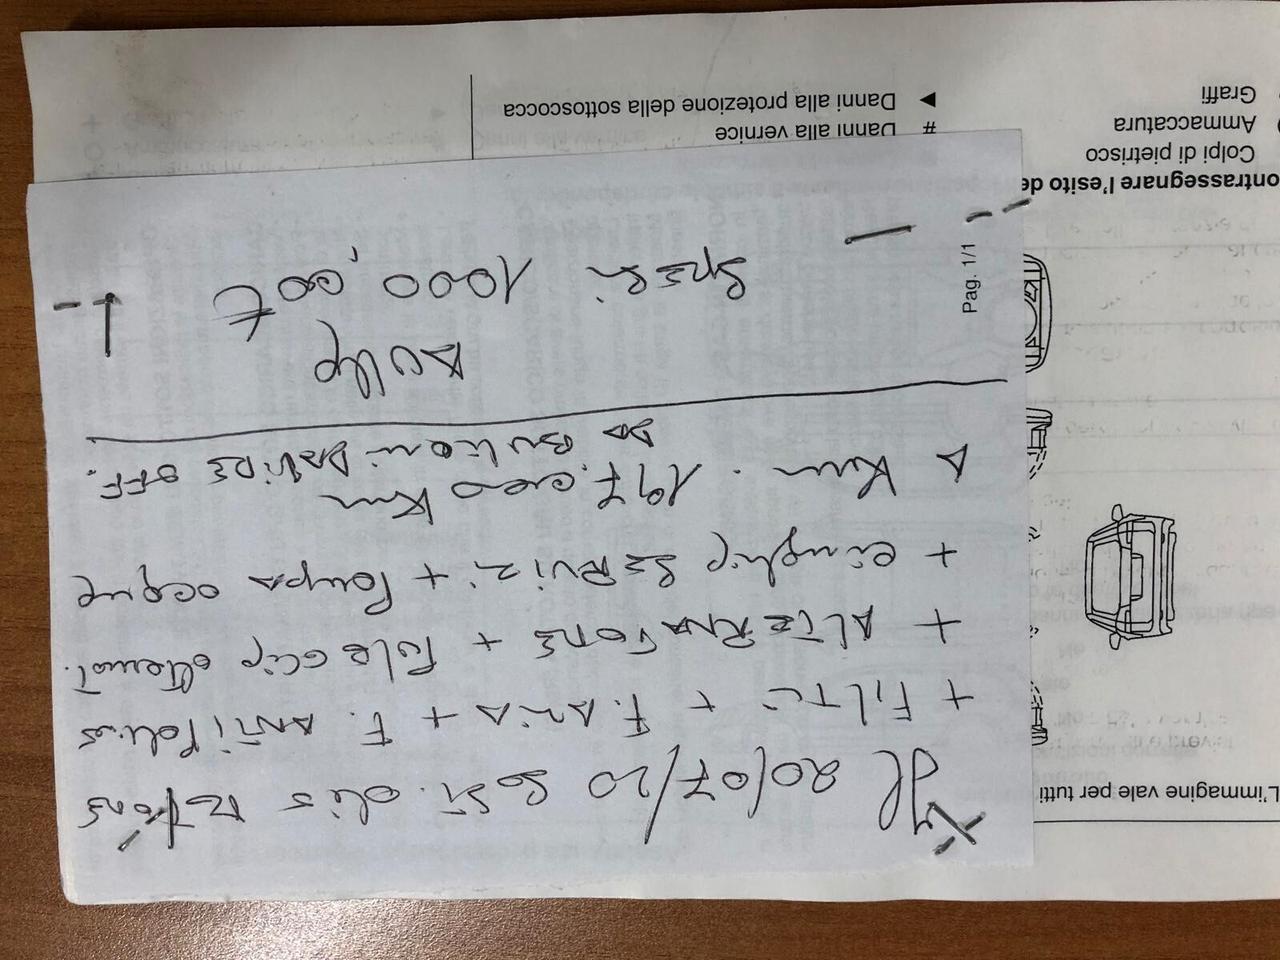 Il 20/07/20 Sost. olio motore
+ FILTri + F. Aria + F. ANTi Polline
+ ALTERNATORE + Puleggia alternat.
+ cinghie SERVizi + Pompa acqua
A Km. 197.000 Km
DA BUTTONI DAVIDE OFF.
Spesi 1000,00 €
Pag. 1/1
Contrassegnare l'esito de
Colpi di pietrisco
Ammaccatura
Graffi
# Danni alla vernice
► Danni alla protezione della sottoscocca
L'immagine vale per tutti